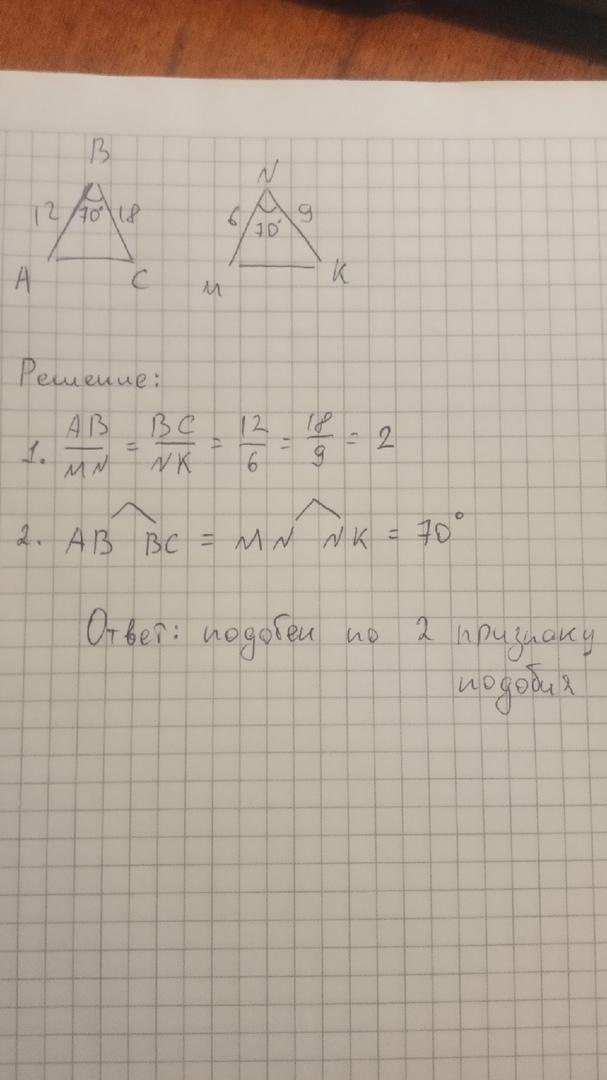 B N
12 70° 18 6 70° 9
A C M K
Решение:
1. AB/MN = BC/NK = 12/6 = 18/9 = 2
2. AB ^ BC = MN ^ NK = 70°
Ответ: подобен по 2 признаку
подобия